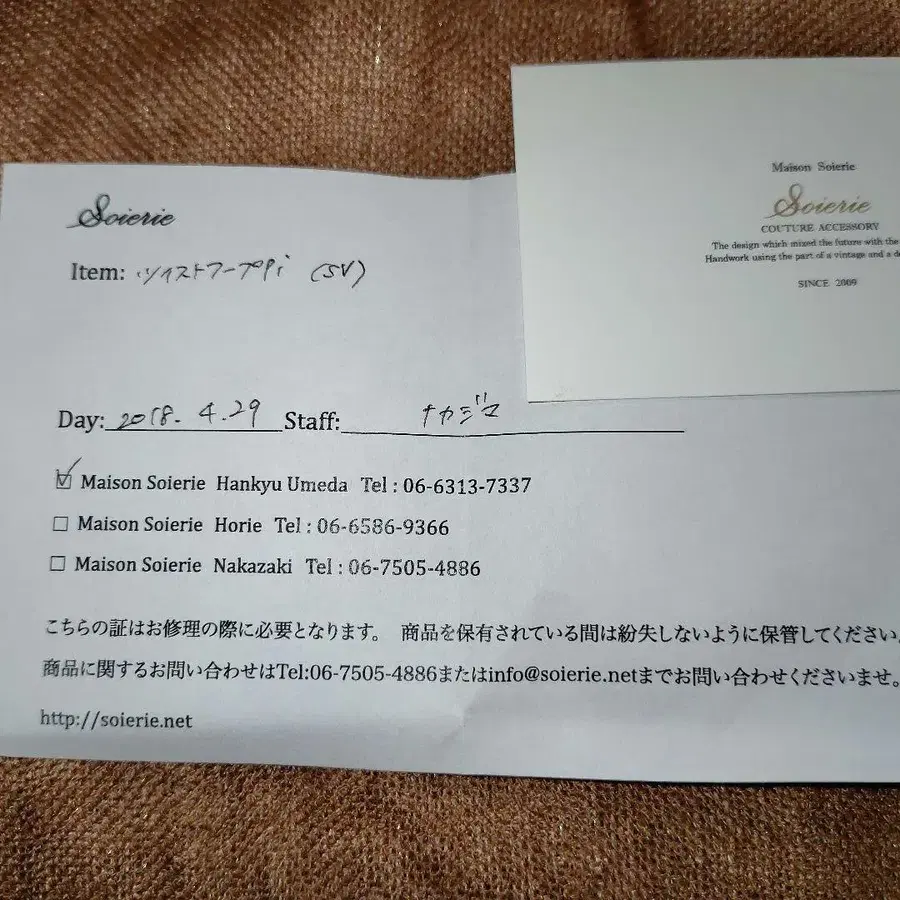 Soierie
Item: ツイストフープPi (SV)
Day: 2018. 4.29 Staff: ナカジマ
Maison Soierie Hankyu Umeda Tel : 06-6313-7337
Maison Soierie Horie Tel : 06-6586-9366
Maison Soierie Nakazaki Tel : 06-7505-4886
こちらの証はお修理の際に必要となります。 商品を保有されている間は紛失しないように保管してください。
商品に関するお問い合わせはTel:06-7505-4886またはinfo@soierie.netまでお問い合わせくださいませ。
http://soierie.net
Maison Soierie
Soierie
COUTURE ACCESSORY
The design which mixed the future with the
Handwork using the part of a vintage and a
SINCE 2009